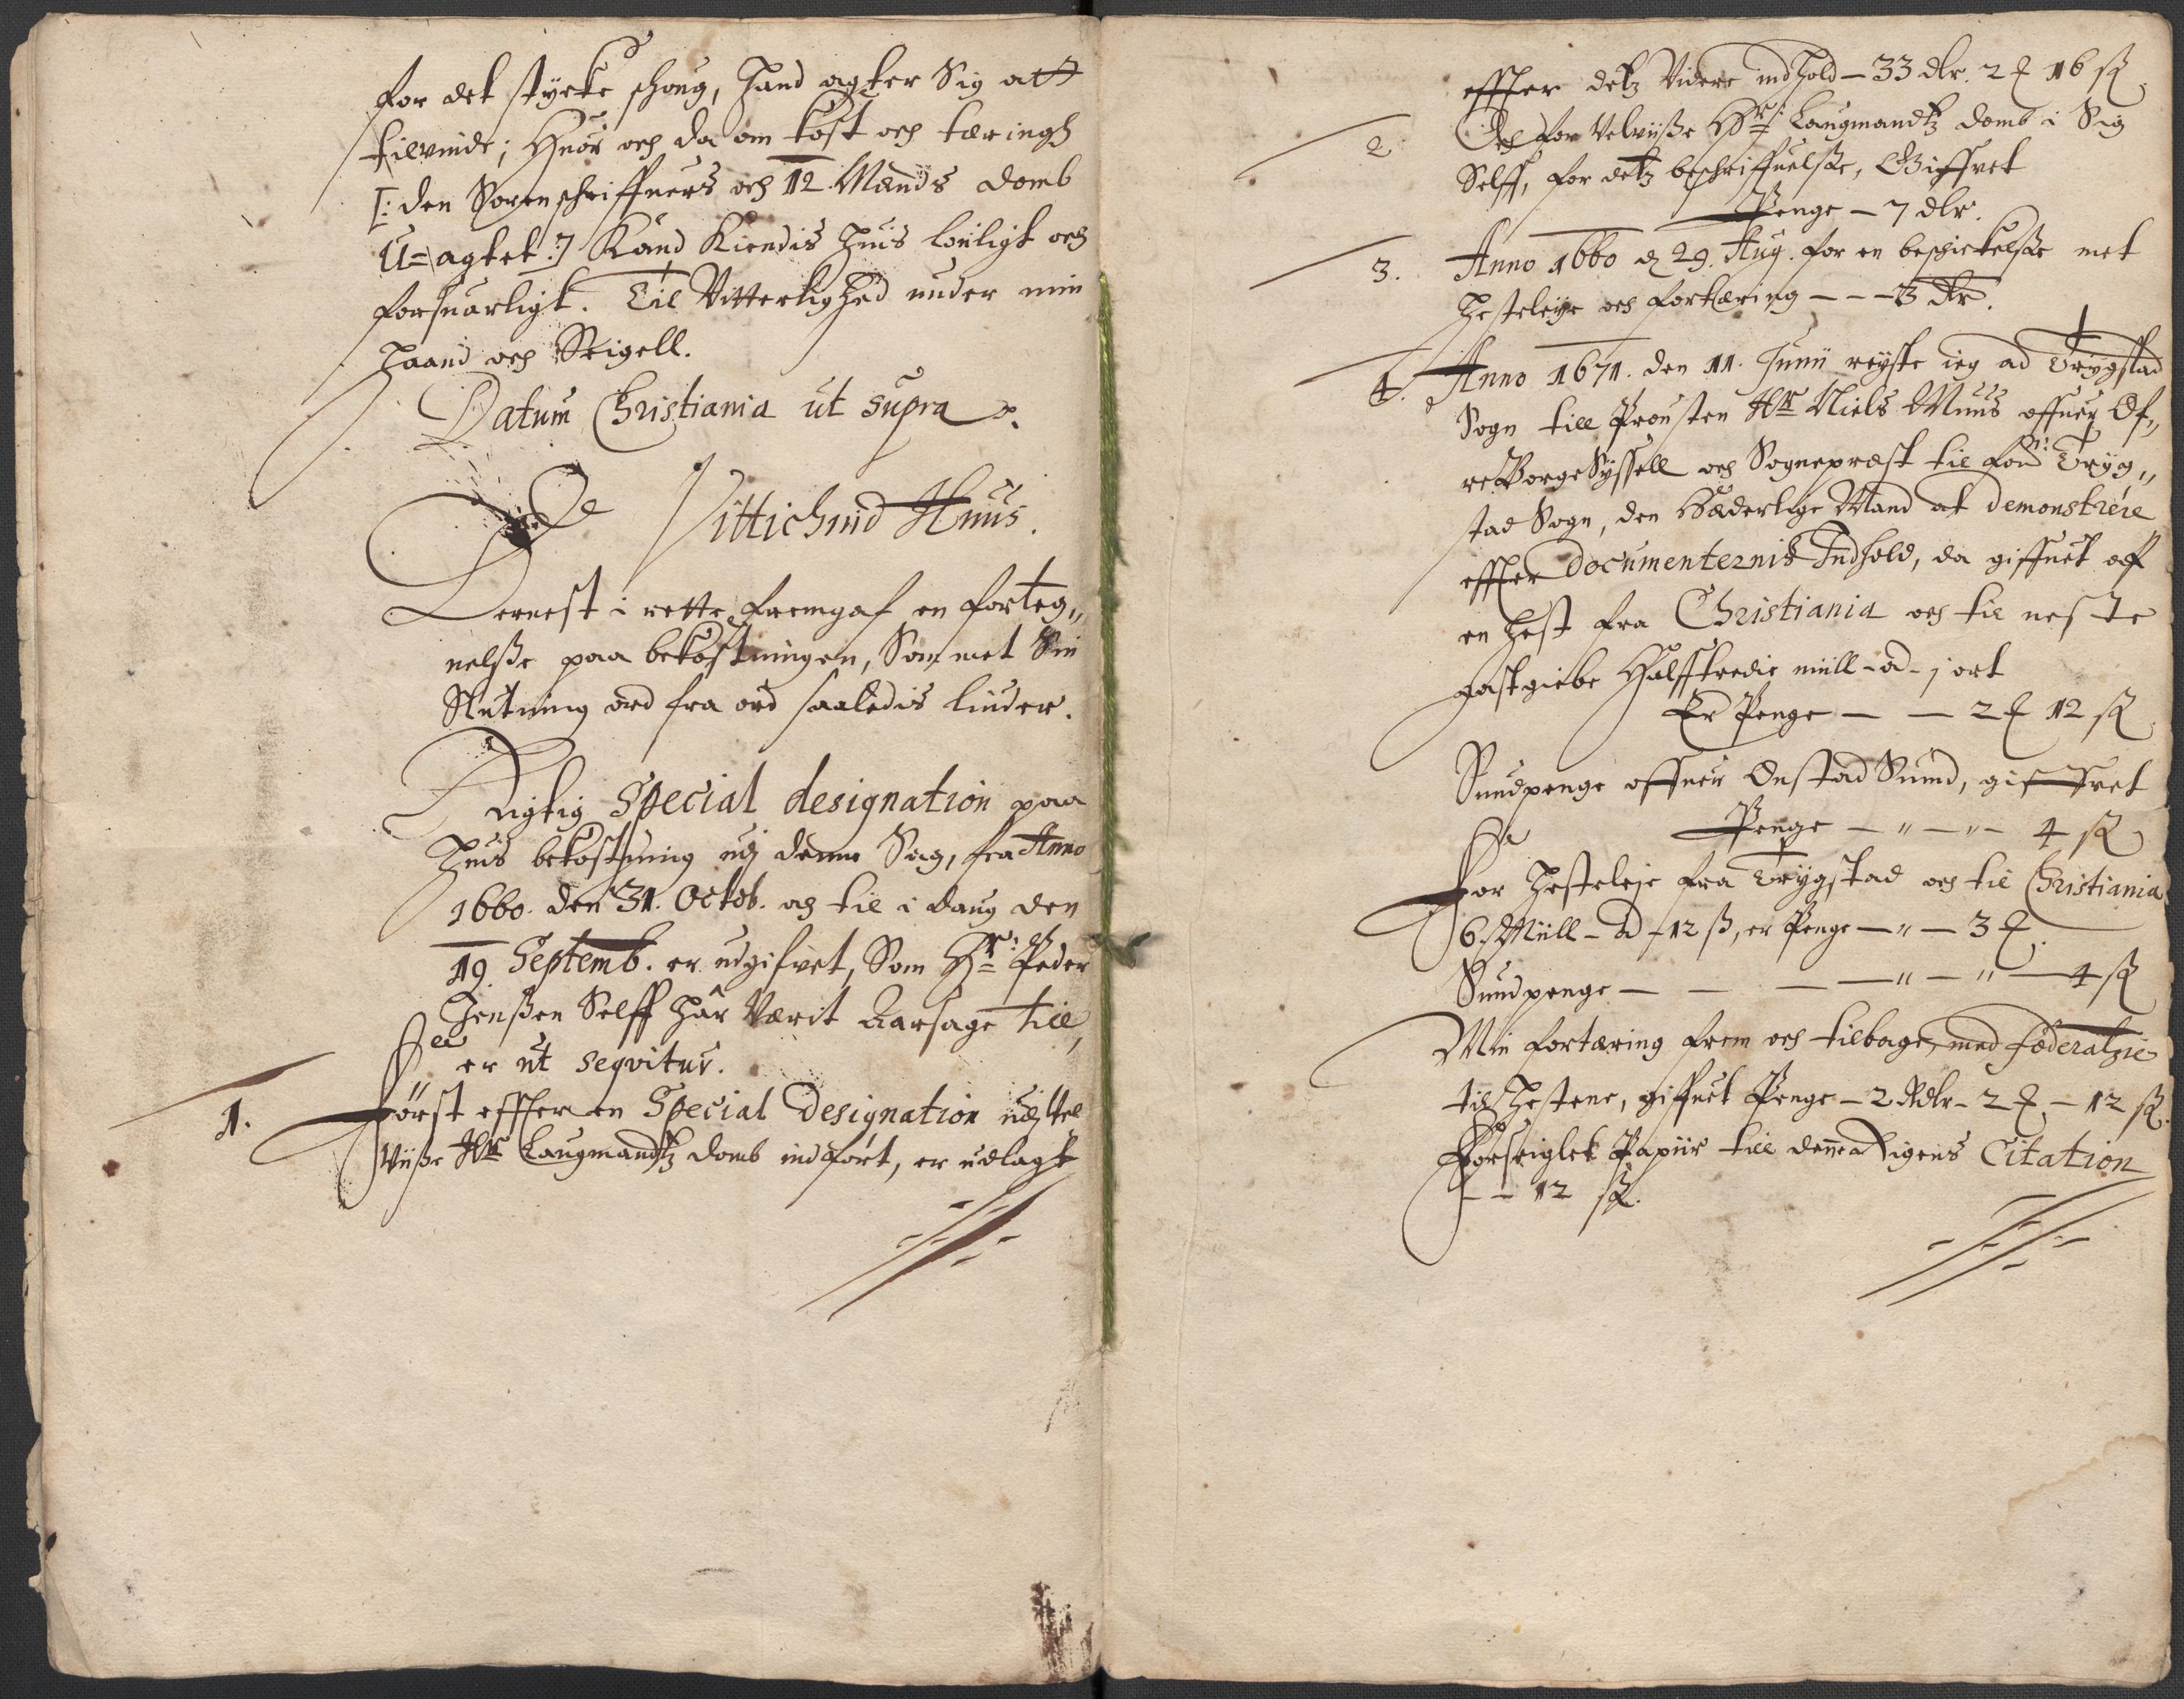 for det stycke schoug, Hand agter Sig att
tilvinde; Huor och da om kost och tæringh
[: den Sorenschriffuers och 12 Mænds domb
U=agtet :] Kand Kiendis Huis louligt och
forsuarligt. Til Vitterlighed under min
Haand och Seigell.
Datum Christiania ut supra
Vittichind Huus.
Dernest i rette fremgaf en forteg„
nelsße paa bekostningen, Som met Sin
Slutning ord fra ord saaledis liuder.
Rigtig Special designation paa
Huis bekostning udj denne Sag, fra Anno
1660. den 31. Octob. och til i daug den
19. Septemb. er udgifvet, Som Hr: Peder
Jenßen Selff har Værit Aarsage till,
er ut seqvitur.
1. Först effter en Special Designation udj Vel
Viiße Hr Laugmandtz domb indfört, er udlagt
effter detz Videre indhold – 33 dlr. 2 ₰ 16 sk
2. Och for Velviiße Hr: Laugmandtz domb i Sig
Selff, for detz beschriffuelße, Giffvet
Penge – 7 dlr.
3. Anno 1660 d 29. Aug. for en beschickelße met
Hesteleije och fortæring – – – 3 dlr.
4. Anno 1671. den 11. Junii reyste ieg ad Trygstad
Sogn till Prousten Hr Niels Muus offuer Öf„
re Borge Syssell och Sognepræst til for: Tryg„
stad Sogn, den Hæderlige Mand at demonstrere
effter documenternis Indhold, da giffuet af
en Hest fra Christiania och til neste
gastgiebe Halfftredie miill – ad – j ort
Er Penge – – 2 ₰ 12 sk
Sundpenge offuer Onstad Sund, giffvet
Penge – „ – „ – 4 sk
For Hesteleje fra Trygstad och til Christiania
6. Miill – ad – 12 ß, er Penge – „ – 3 ₰.
Sundpenge – – – – „ – „ – 4 sk
Min fortæring frem och tilbage, med föderatzie
til Hestene, giffuet Penge – 2 Rdlr – 2 ₰ – 12 sk.
Forseiglet Papiir till denne Citation
– – 12 sk.